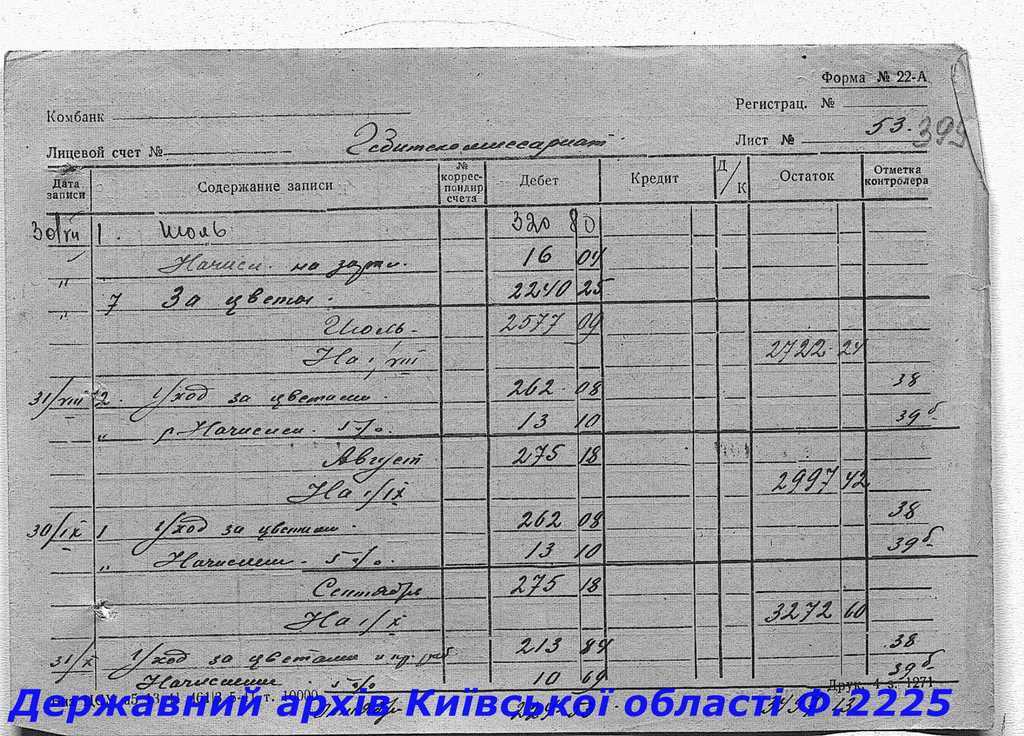 Форма № 22-А
Регистрац. №
Комбанк
Лист № 53. 395
Лицевой счет № Гебитскомиссариат
Дата записи Содержание записи № корреспондир счета Дебет Кредит Д/К Остаток Отметка контролера
30/VII 1. Июль 320 80
" Начисл. на зарпл. 16 04
" 7 За цветы. 2240 25
Июль 2577 09
На 1/VIII 2722 24
31/VIII 2. Уход за цветами. 262 08 38
" Начислен. 5%. 13 10 39б
Август 275 18
На 1/IX 2997 42
30/IX 1 Уход за цветами. 262 08 38
" Начислен. 5%. 13 10 39б
Сентябрь 275 18
На 1/X 3272 60
31/X Уход за цветами и пр. раб 213 84 38
Начислении 5% 10 69 39б
10000 Друк. 1271
Октябрь
Державний архів Київської області Ф.2225